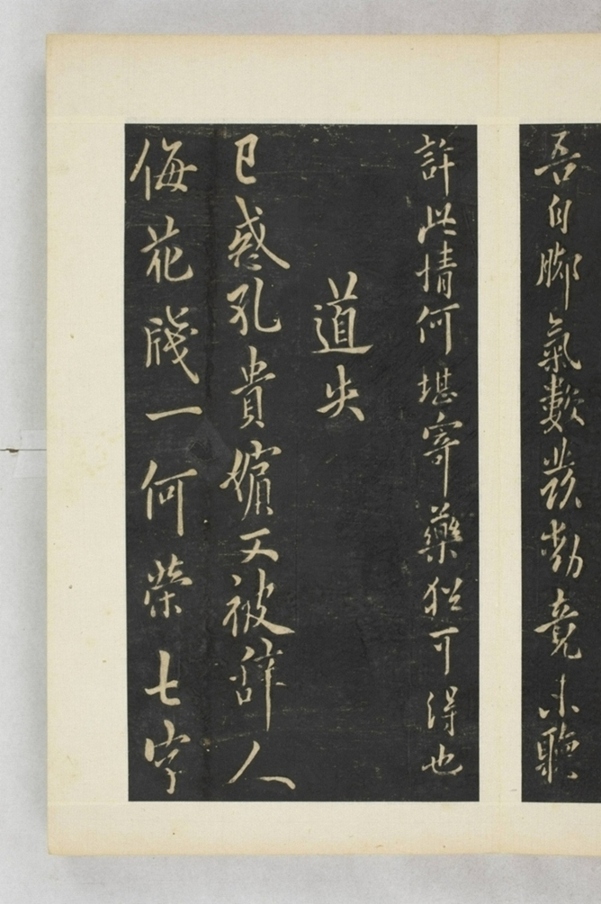 吾自脚氣數發動竟未聽
許此情何堪寄藥猶可得也
道失
已惑孔貴嬪又被辞人
侮花牋一何榮七字